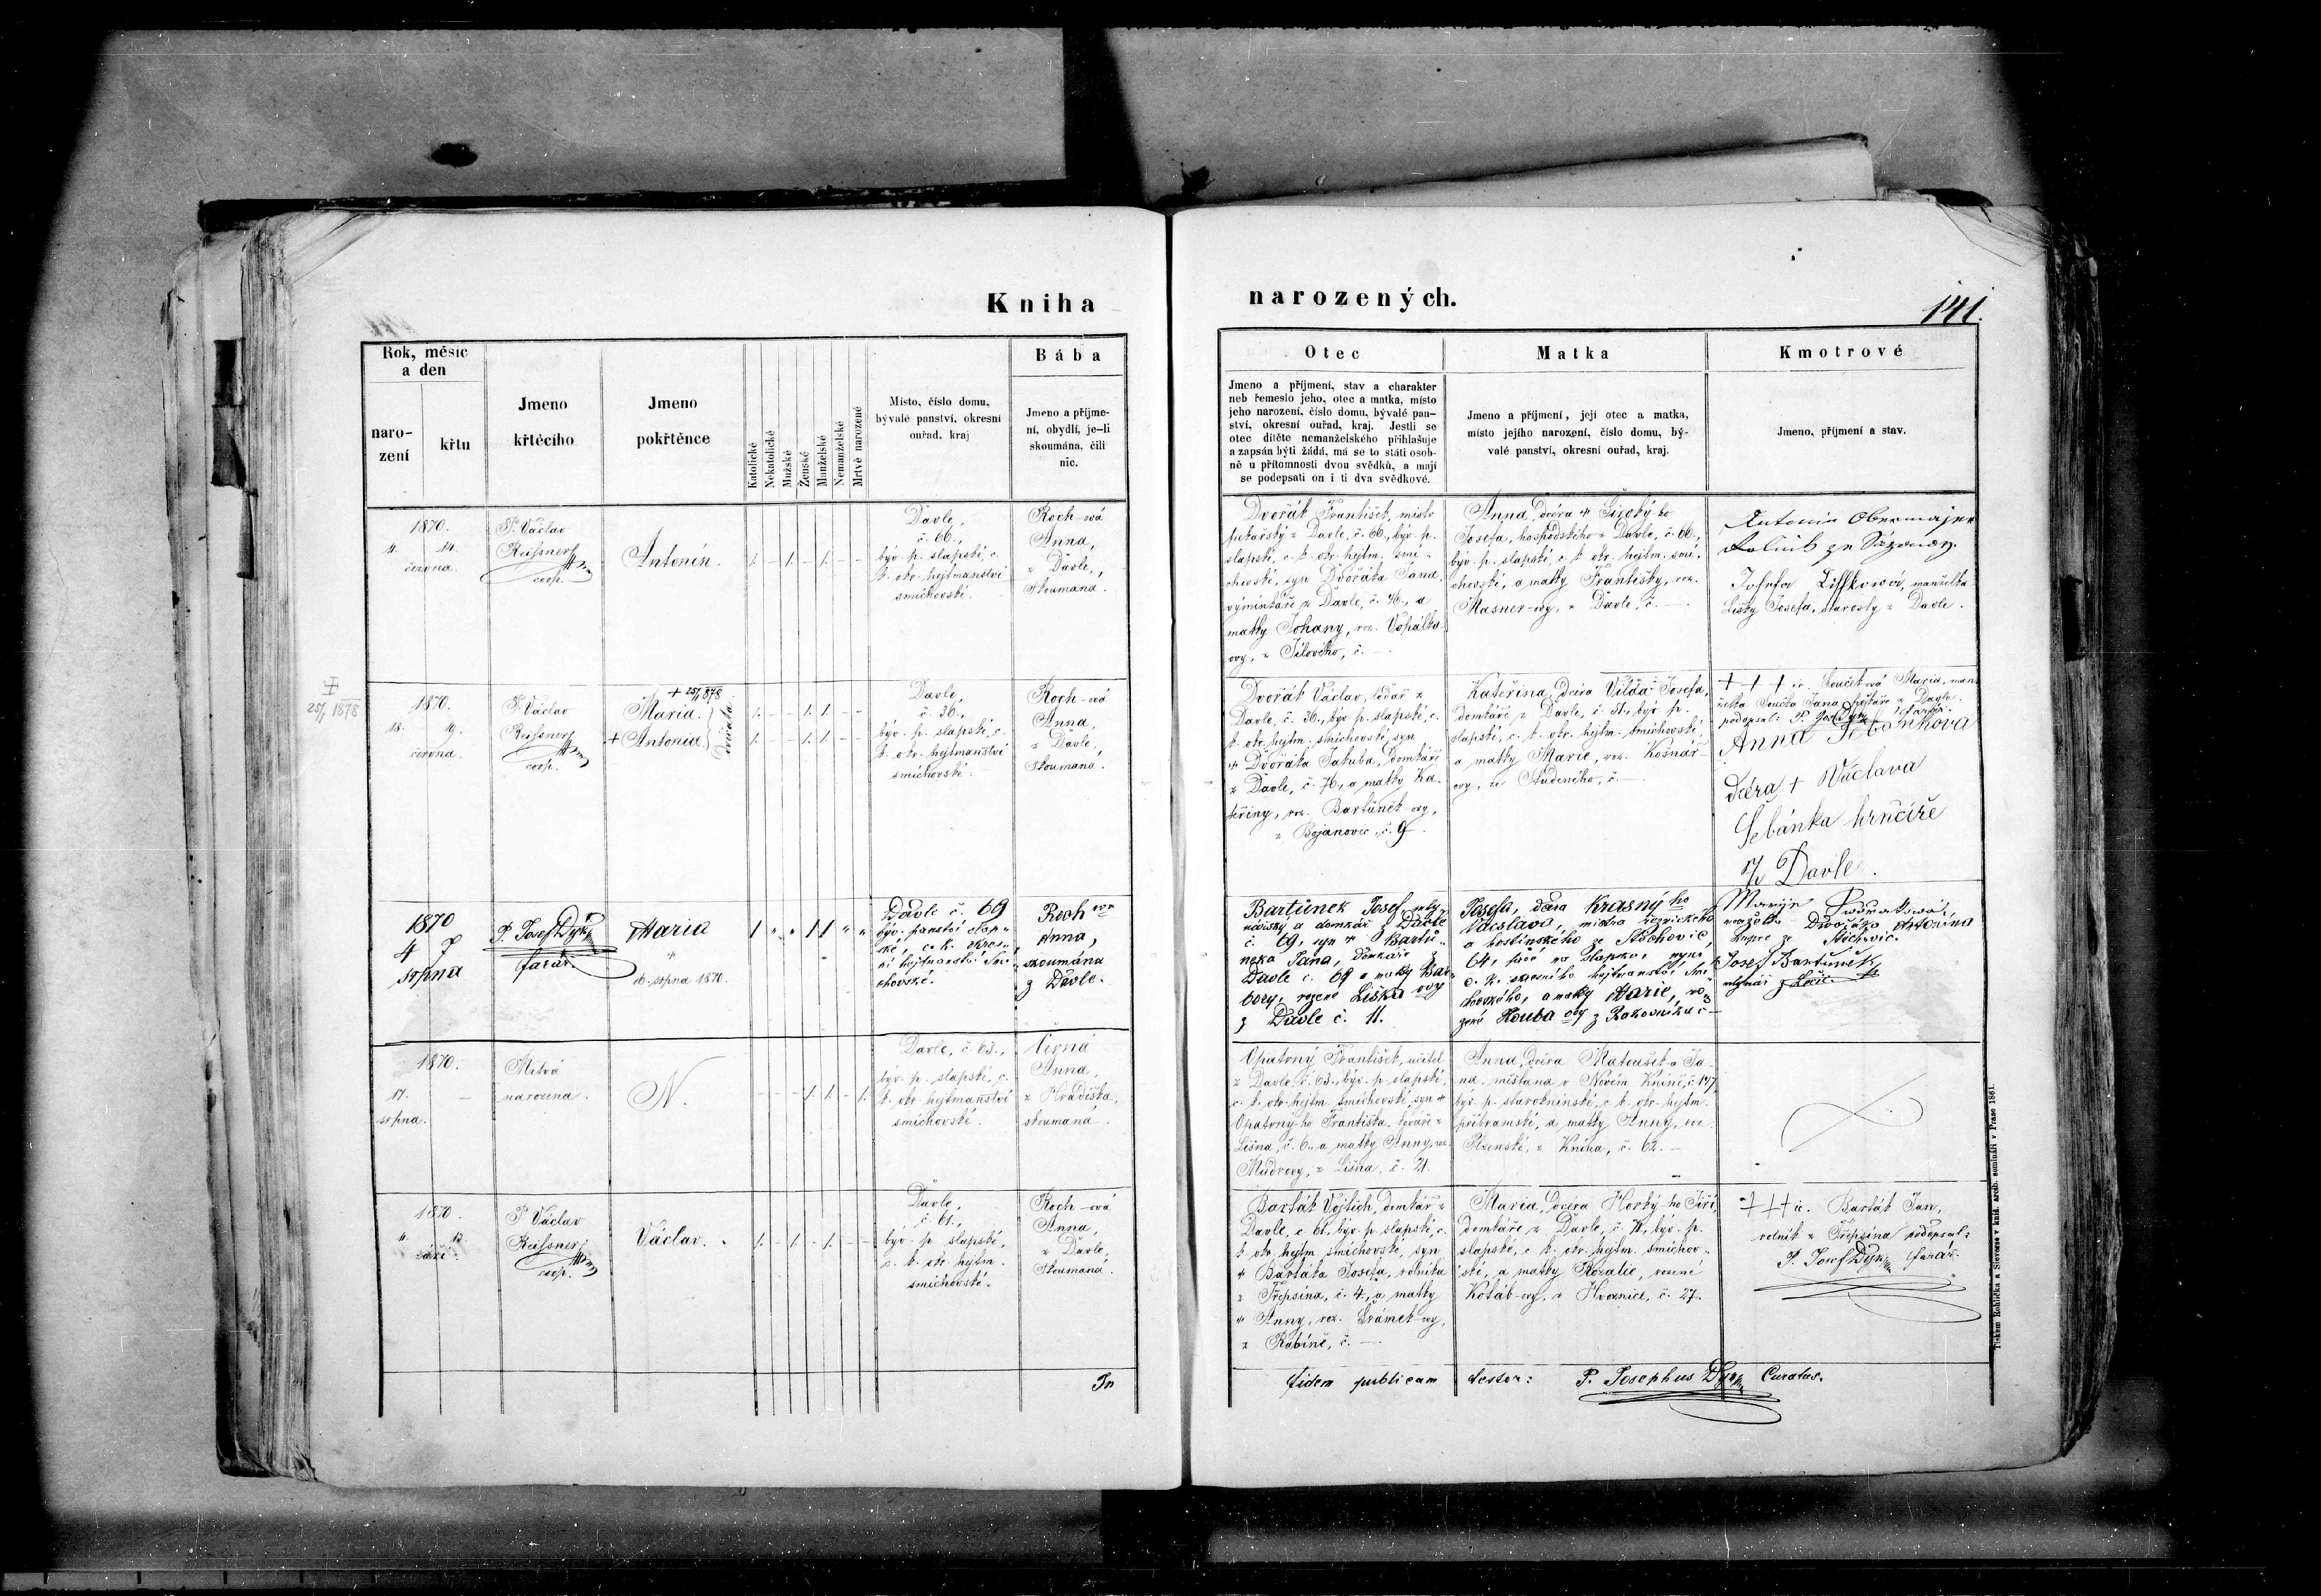 Kniha
narozených.
141.
Rok, měsíc
a den
naro-
zení
křtu
Jmeno
křtěcího
Jmeno
pokřtěnce
Katolické
Nekatolické
Mužské
Ženské
Manželské
Nemanželské
Mrtvě narozené
Místo, číslo domu,
bývalé panství, okresní
ouřad, kraj
Bába
Jmeno a příjme-
ní, obydlí, je-li
skoumána, čili
nic.
Otec
Jmeno a příjmení, stav a charakter
neb řemeslo jeho, otec a matka, místo
jeho narození, číslo domu, bývalé pan-
ství, okresní ouřad, kraj. Jestli se
otec dítěte nemanželského přihlašuje
a zapsán býti žádá, má se to státi osob-
ně u přítomnosti dvou svědků, a mají
se podepsati on i ti dva svědkové.
Matka
Jmeno a příjmení, její otec a matka,
místo jejího narození, číslo domu, bý-
valé panství, okresní ouřad, kraj.
Kmotrové
Jmeno, příjmení a stav.
1870.
června.
P. Václav
Reissner
coop.
Antonín.
Davle,
č. 66.,
býv. p. slapské, c.
k. okr. hejtmanství
smíchovské.
Koch-ová
Anna,
z Davle,
skoumaná.
Dvořák František, mistr
pekařský z Davle, č. 66., býv. p.
slapské, c. k. okr. hejtm. smí-
chovské, syn Dvořáka Jana,
výminkáře z Davle, č. 46., a
matky Johany, roz. Vopálka-
ovy, z Jílového, č. —
Anna, dcera † Široký-ho
Josefa, hospodského z Davle, č. 66.,
býv. p. slapské, c. k. okr. hejtm. smí-
chovské, a matky Františky, roz.
Masner-ovy, z Davle, č. —
Antonín Obermajer
Josefa Liškowá, manželka
Lišky Josefa, starosty z Davle.
25/1 1878
1870.
18. 19.
června.
P. Václav
Reissner
coop.
+ 25/1 878
Maria.
+ Antonia.
dvojčata
Davle,
č. 36.,
býv. p. slapské, c.
k. okr. hejtmanství
smíchovské.
Koch-ová
Anna,
z Davle,
skoumaná.
Dvořák Václav, lodař z
Davle, č. 36., býv. p. slapské, c.
k. okr. hejtm. smíchovské, syn
† Dvořáka Jakuba, domkáře
z Davle, č. 76., a matky Ka-
teřiny, roz. Bartůněk-ovy,
z Bojanovic, č. 9.
Kateřina, dcera Vilda Josefa,
domkáře z Davle, č. 51., býv. p.
slapské, c. k. okr. hejtm. smíchovské,
a matky Marie, roz. Košnář-
ovy, ze Studeného, č. —
+++ ic. Součková Maria, man-
želka Součka Jana z Davle.
podepsal: P. Josef Dyk, farář.
Anna Šebánkova
dcéra + Václava
Šebánka hrnčíře
z Davle.
1870
4 7
srpna
P. Josef Dyk,
farář.
Maria
16. srpna 1870.
Davle č. 69
býv. panství slap-
ské, c. k. okres-
ní hejtmanství Smí-
chovské.
Koch ová
Anna,
skoumána
z Davle.
Bartůněk Josef, mly-
nářský a domkář z Davle
č. 69, syn † Bartů-
ňka Jana, domkáře z
Davle č. 69 a matky Bar-
bory, rozené Liška ovy
z Davle č. 11.
Josefa, dcera Krásný ho
Václava, mistra řeznického
a hostinského ze Štěchovic,
64, nyní
c. k. okresního hejtmanství Smí-
chovského, a matky Marie, ro-
zené Houba ovy z Rakovníka č —
Maryje Dvořaková,
manželka Dvořáka Antonína
kupce ze Štěchovic.
Josef Bartůněk
mlynář
1870.
17. —
srpna.
Mrtvá
narozena.
N.
Davle, č. 63.,
býv. p. slapské, c.
k. okr. hejtmanství
smíchovské.
Černá
Anna,
z Hradištka,
skoumaná.
Opatrný František, učitel
z Davle, č. 63., býv. p. slapské,
c. k. okr. hejtm. smíchovské, syn †
Opatrný-ho Františka, z
Lišna, č. 6., a matky Anny, roz.
Mudrovy, z Lišna, č. 21.
Anna, dcera Matoušek-a Ja-
na, měšťana v Novém Kníně, č. 147,
býv. p. staroknínské, c. k. okr. hejtm.
příbramské, a matky Anny, roz.
Plzenské, z Knína, č. 62. —
1870.
11. 12.
září.
P. Václav
Reissner
coop.
Václav.
Davle,
č. 61.,
býv. p. slapské,
c. k. okr. hejtm.
smíchovské.
Koch-ová
Anna,
z Davle,
skoumaná.
Barták Vojtěch, domkář z
Davle, č. 61., býv. p. slapské, c.
k. okr. hejtm. smíchovské, syn
† Bartáka Josefa, rolníka
z Třepsina, č. 4., a matky
† Anny, roz. Šrámek-ovy,
z Rabíně, č. —
Maria, dcera Horký-ho Jiří,
domkáře z Davle, č. 71., býv. p.
slapské, c. k. okr. hejtm. smíchov-
ské, a matky Rozalie, rozené
Kotáb-ovy, z Hvoznice, č. 27.
+++ ic. Barták Jan,
rolník z Třepsina podepsal:
P. Josef Dyk, farář.
In
fidem publicam testor: P. Josephus Dyk, Curatus.
Tiskem Rohlíčka a Sieversa v kníž. arcib. semináři v Praze 1861.